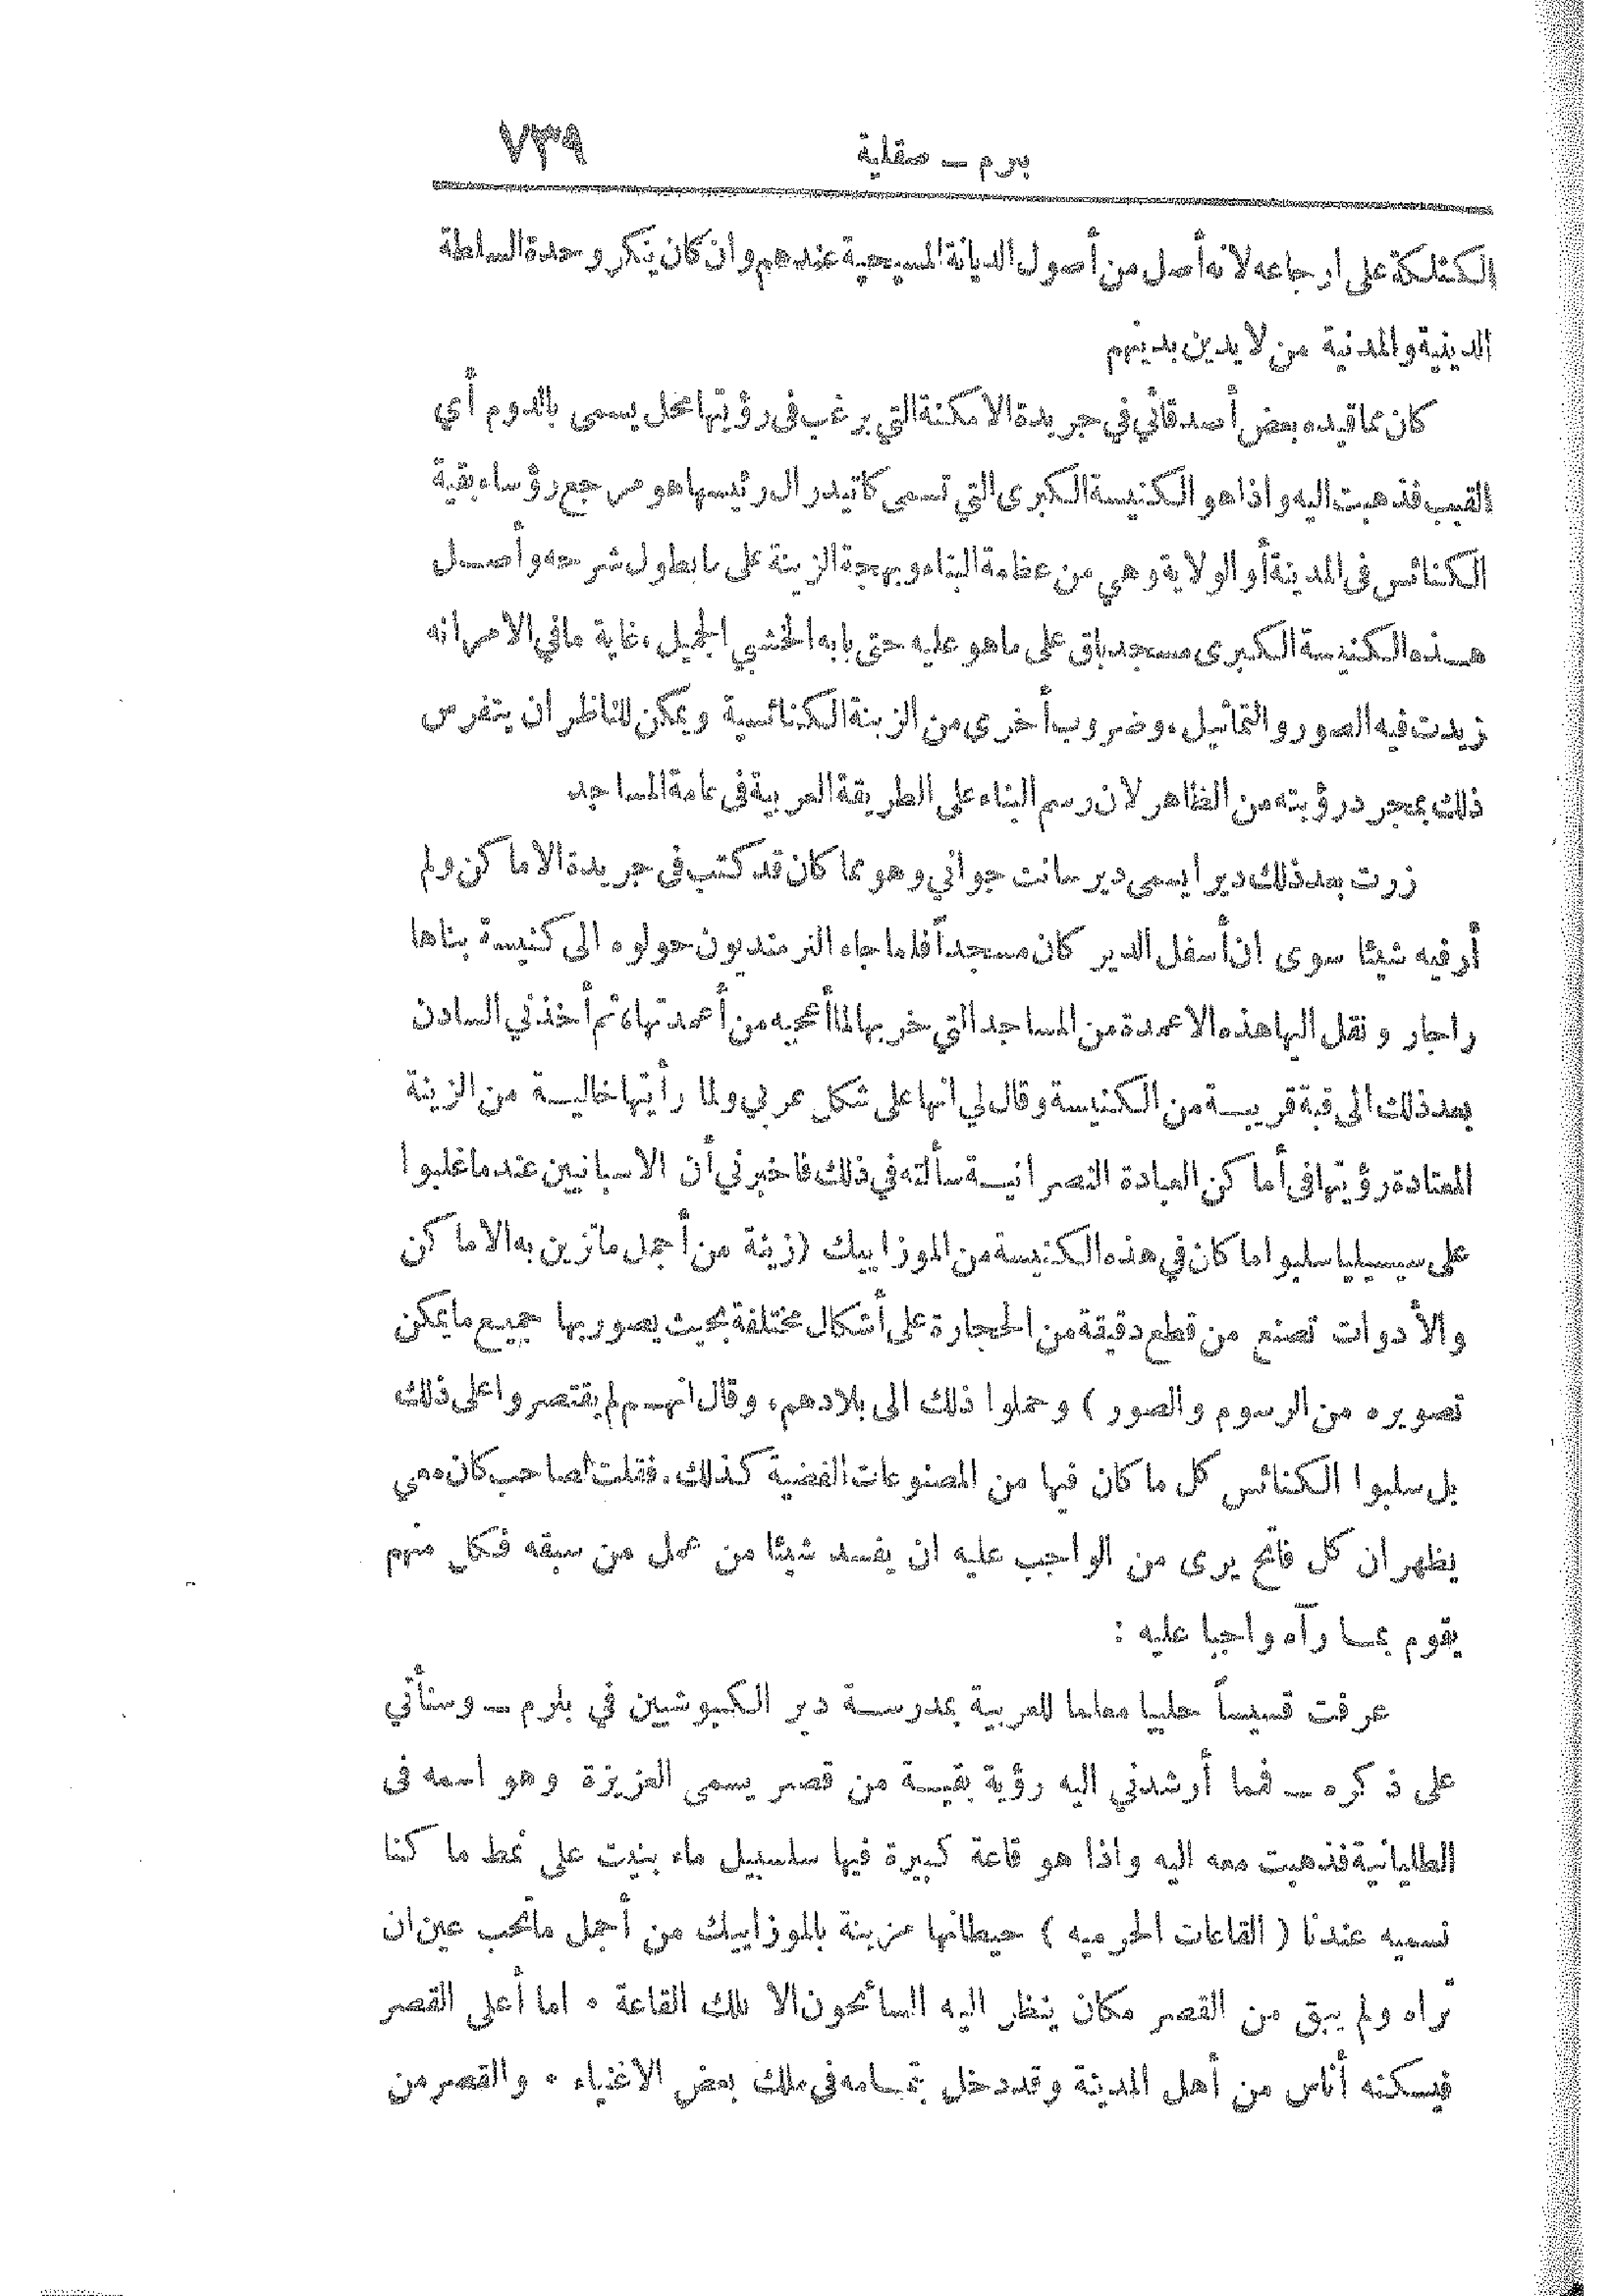 برم ــ صقلية ٧٣٩
الكثلكة على ارجاعه لانه أصل من أصول الديانة المسيحية عندهم وان كان ينكر وحدة السلطة
الدينية والمدنية من لا يدين بدينهم
كان مما قيده بعض أصدقائي في جريدة الامكنة التي يرغب في رؤيتها محل يسمى بالدوم أي
القبب فذهبت اليه واذا هو الكنيسة الكبرى التي تسمى كاتيدرال رئيسها هو مرجع رؤساء بقية
الكنائس في المدينة أو الولاية وهي من عظامة البناء وبهجة الزينة على ما يطول شرحه وأصــل
هــذه الكنيسة الكبرى مسجد باق على ما هو عليه حتى بابه الخشبي الجميل، غاية ما في الامر انه
زيدت فيه الصور والتماثيل، وضروب أخرى من الزينة الكنائسية ويمكن للناظر ان يتفرس
ذلك بمجرد رؤيته من الظاهر لان رسم البناء على الطريقة العربية في عامة المساجد
زرت بعد ذلك ديرا يسمى دير سانت جواني وهو مما كان قد كتب في جريدة الاماكن ولم
أر فيه شيئا سوى ان أسفل الدير كان مسجداً فلما جاء النرمنديون حولوه الى كنيسة بناها
راجار ونقل اليها هذه الاعمدة من المساجد التي خربها لما أعجبه من أعمدتها، ثم أخذني السادن
بعد ذلك الى قبة قريبــة من الكنيسة وقال لي انها على شكل عربي ولما رأيتها خاليــة من الزينة
المعتادة رؤيتها في أماكن العبادة النصرانيــة سألته في ذلك فاخبرني أن الاسبانيين عند ما غلبوا
على سيسيليا سلبوا ما كان في هذه الكنيسة من الموزاييك (زينة من أجمل ما تزين به الاماكن
والأدوات تصنع من قطع دقيقة من الحجارة على أشكال مختلفة بحيث يصور بها جميع ما يمكن
تصويره من الرسوم والصور) وحملوا ذلك الى بلادهم، وقال انهــم لم يقتصروا على ذلك
بل سلبوا الكنائس كل ما كان فيها من المصنوعات الفضية كذلك. فقلت لصاحب كان معي
يظهر ان كل فاتح يرى من الواجب عليه ان يفسد شيئا من عمل من سبقه فكل منهم
يقوم بمــا رآه واجبا عليه :
عرفت قسيساً حلبيا معلما للعربية بمدرســة دير الكبوشيين في بلرم ــ وسنأتي
على ذكره ــ فما أرشدني اليه رؤية بقيــة من قصر يسمى العزيزة وهو اسمه في
الطليانية فذهبت معه اليه واذا هو قاعة كبيرة فيها سلسبيل ماء بنيت على نمط ما كنا
نسميه عندنا ( القاعات الحرميه ) حيطانها مزينة بالموزاييك من أجمل ما تحب عين ان
تراه ولم يبق من القصر مكان ينظر اليه السائحون الا تلك القاعة ٠ اما أعلى القصر
فيسكنه أناس من أهل المدينة وقد دخل بتمــامه في ملك بعض الاغنياء ٠ والقصر من